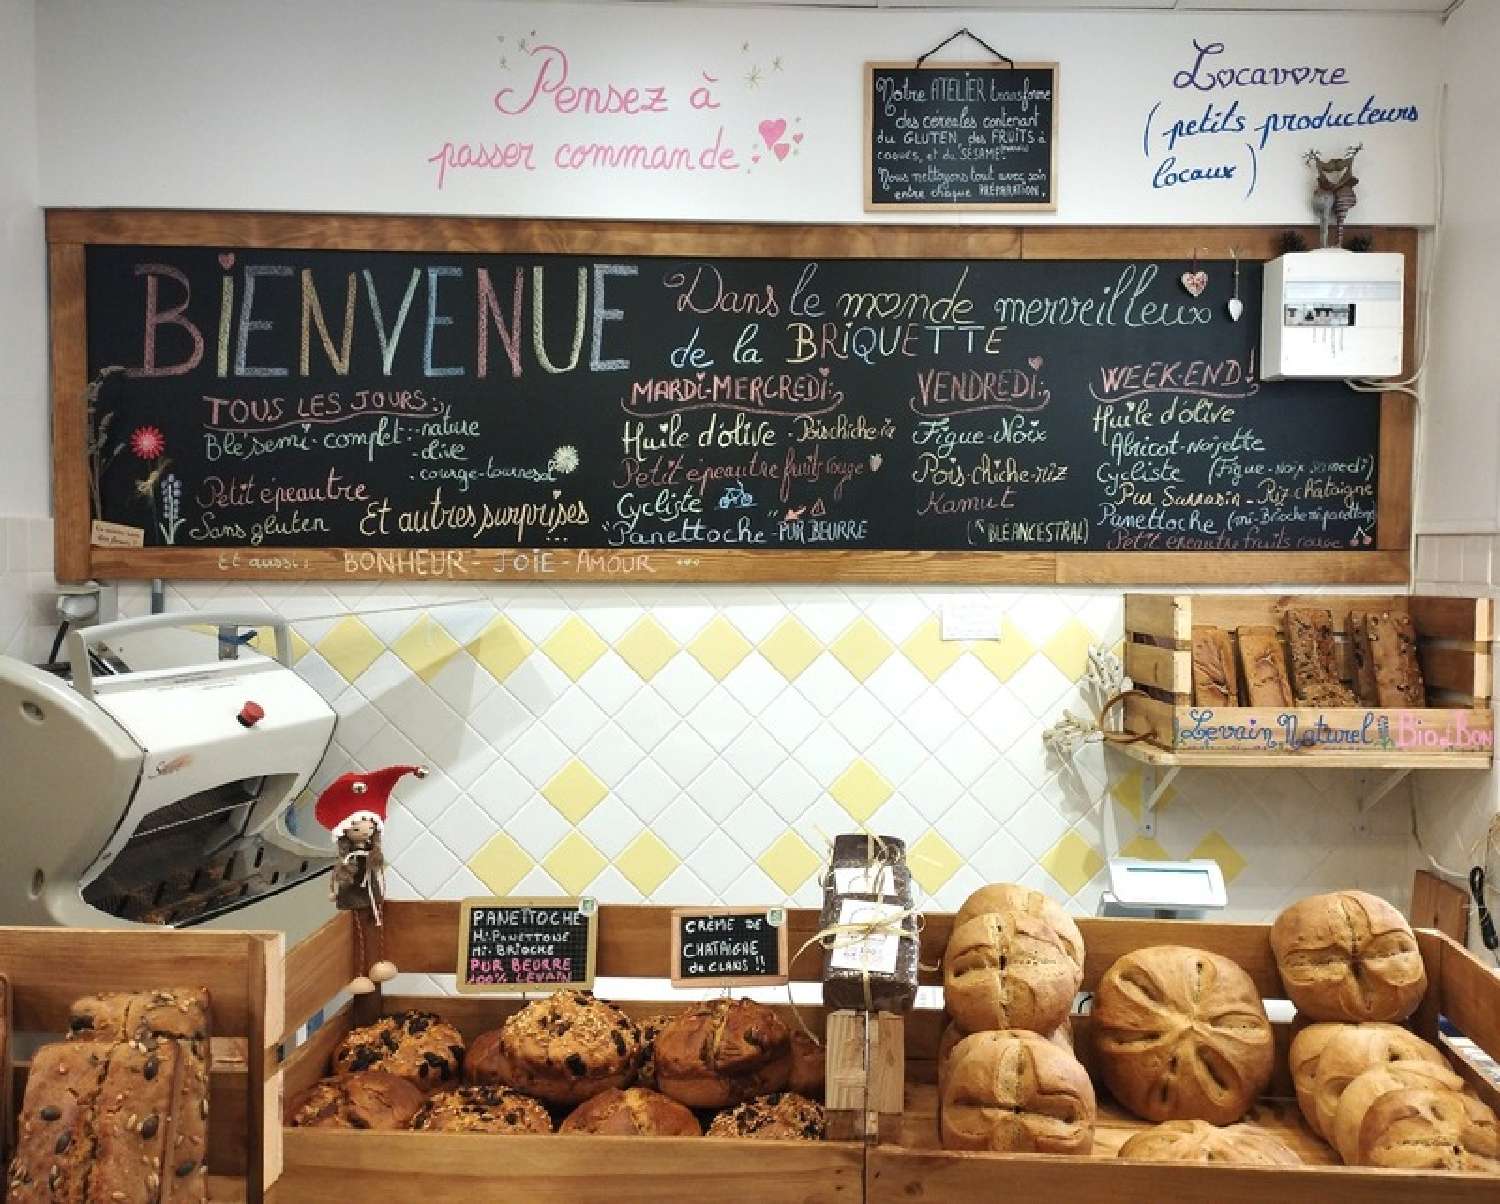 Pensez à
passer commande
Notre ATELIER transforme
des céréales contenant
du GLUTEN, des FRUITS à
coques, et du SÉSAME.
Nous nettoyons tout avec soin
entre chaque PRÉPARATION.
Locavore
(petits producteurs
locaux)
BIENVENUE
Dans le monde merveilleux
de la BRIQUETTE
TOUS LES JOURS:
Blé semi-complet: -nature
-olive
-courge-tournesol
Petit épeautre
Sans gluten
Et autres surprises
...
MARDI-MERCREDI:
Huile d'olive - Poischiche-riz
Petit épeautre fruits rouge
Cycliste
"Panettoche - PUR BEURRE
VENDREDI:
Figue-Noix
Pois-chiche-riz
Kamut
(BLÉ ANCESTRAL)
WEEK-END!
Huile d'olive
Abricot-noisette
Cycliste (Figue-noix samedi)
Pur Sarrasin - Riz chataigne
Panettoche (mi-Brioche mi-panettone)
Petit epeautre fruits rouge
Et aussi: BONHEUR - JOIE - AMOUR
Levain Naturel Bio et Bon
PANETTOCHE
Mi-PANETTONE
Mi-BRIOCHE
PUR BEURRE
100% LEVAIN
CRÈME DE
CHATAIGNE
de CLANS !!